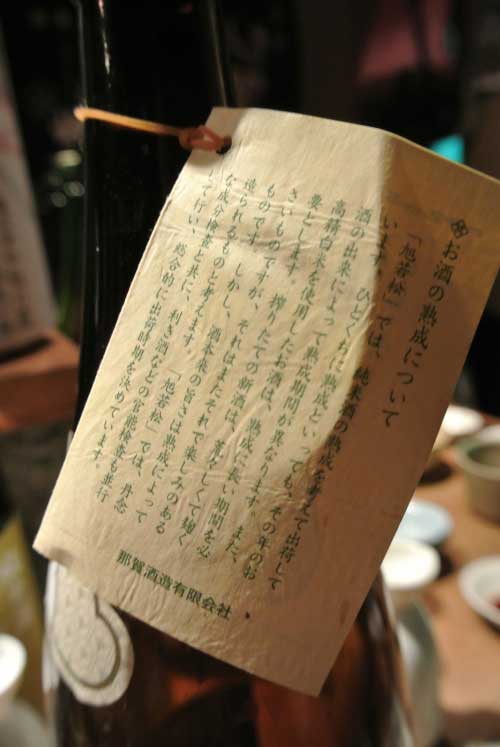 お酒の熟成について
「旭若松」では、純米酒の熟成を考えて出荷して
います。ひとくちに熟成といっても、その年のお
酒の出来によって熟成期間が異なります。また、
高精白米を使用したお酒は、熟成に長い期間を必
要とします。搾りたての新酒は、荒々しくて麹く
さいものですが、それはまたそれで楽しみのある
ものです。しかし、酒本来の旨さは熟成によって
造られるものと考えます。「旭若松」では、丹念
な成分検査と共に、利き酒などの官能検査も並行
して行い、総合的に出荷時期を決めています。
那賀酒造有限会社